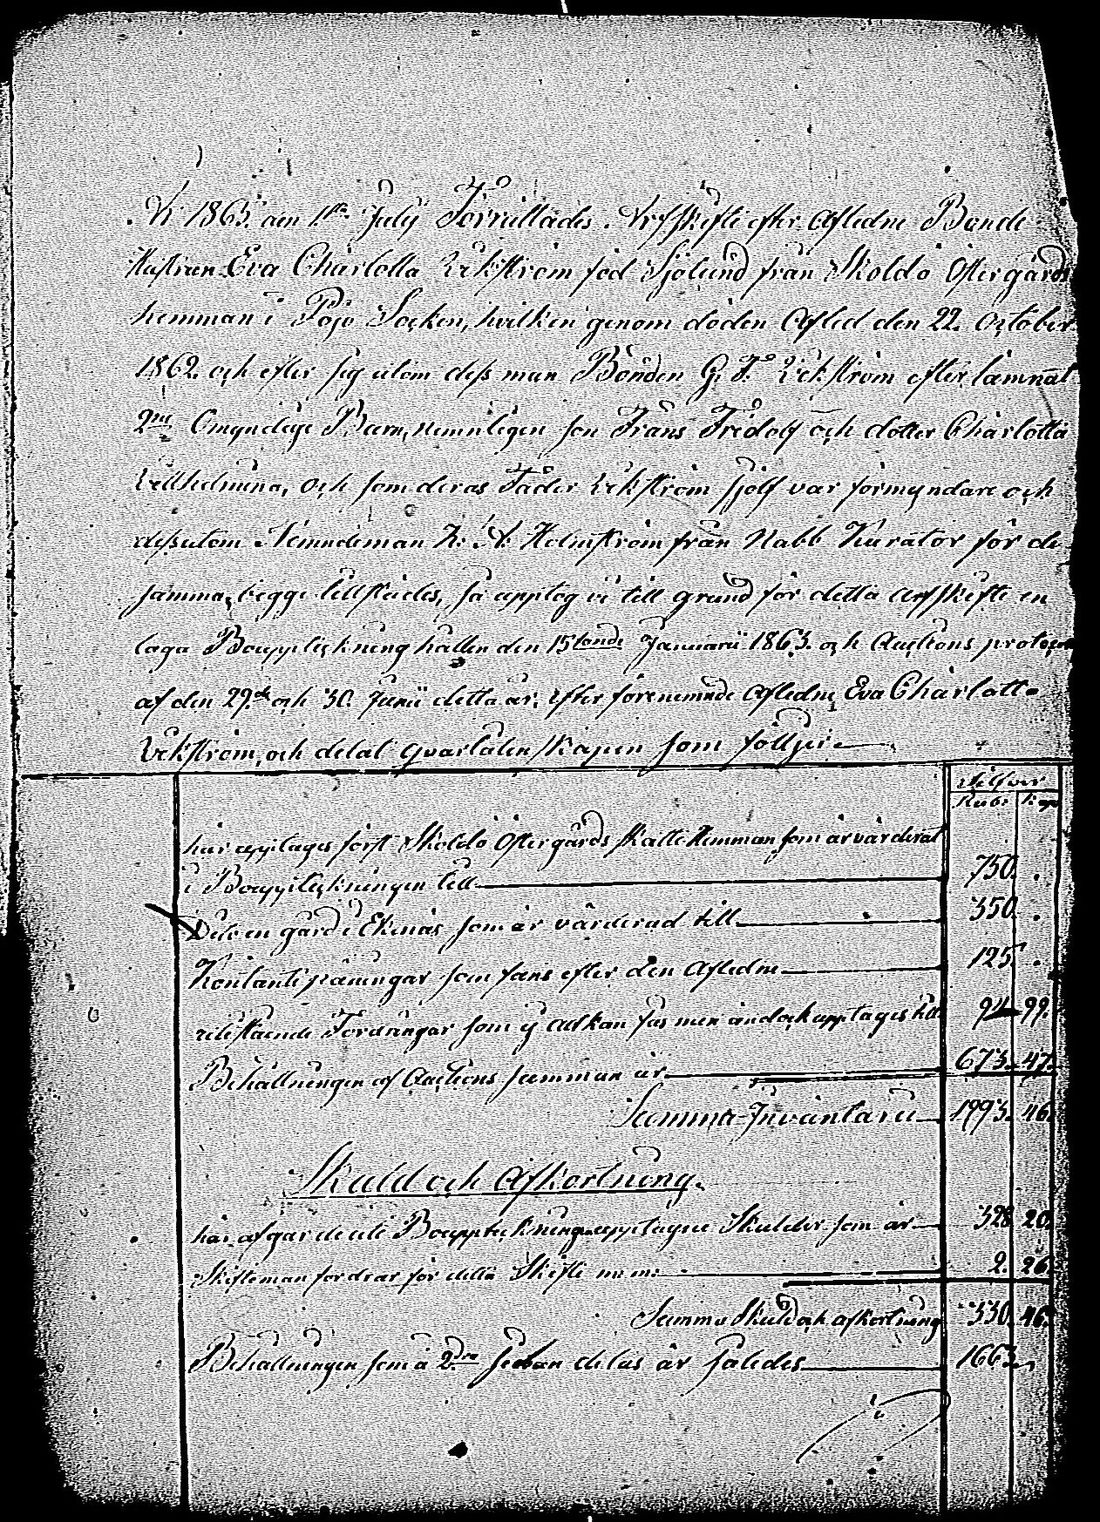 År 1863. den 1sta July Förrättades Arfskifte efter Afledne Bonde
Hustrun Eva Charlotta Ekström föd Sjölund från Skoldö Östergårds
hemman i Pojo Socken, hvilken genom döden Afled den 22. October
1862. och efter sig utom dess man Bonden G. F. Ekström efterlämnat
2ne Omyndige Barn, nemnligen son Frans Fridolf och dotter Charlotta
Villhelmina, och som deras Fader Ekström sjelf var förmyndare och
dessutom Nemndeman K: A: Holmström från Nabb Kurator för de
samma, begge tillstädes, så upptog vi till grund för detta arfskifte en
laga Boupptekning hållen den 15tonde Januarii 1863. och Auctions protoco
af den 29de och 30. Junii detta år, efter förenemnde Afledne Eva Charlotta
Ekström, och delat qvarlåtenskapen som följer
Silfver
Rub: Kop
här upptages först Skoldö Östergårds Skatte Hemman som är värderat
i Bouppteckningen till 750. .
Dito en gård i Ekenäs som är värderad till 350. .
Kontanti päningar som fans efter den Afledne 125. .
utestående Fordringar som ej all kan fås men ändock upptages till 94. 99.
Behållningen af Auctions summan är 673. 47.
Summa Inventarii 1993. 46.
Skuld och Afkortning.
här afgår de uti Bouppteckningen upptagne Skulder som är 328. 20.
Skiftesman fordrar för detta Skifte m:m: 2. 26.
Summa Skuld och afkortning 330. 46.
Behållningen som å 2dra sidan delas är således 1663.